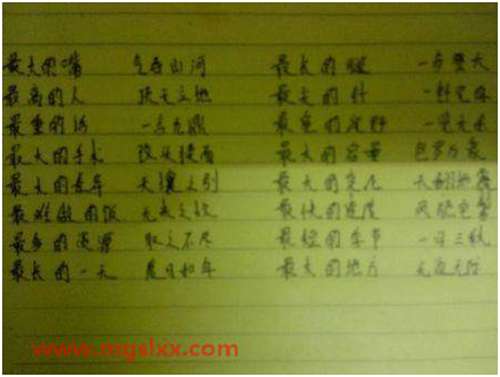 最大的嘴 气吞山河 最长的腿 一步登天
最高的人 顶天立地 最大的
最重的话 一言九鼎 一览无余
最大的手术 改头换面 最大的容量 包罗万象
最大的差异 天壤之别 最大的变化 天翻地覆
最难做的饭 无米之炊 最快的速度 风驰电掣
最多的 取之不尽 最短的季节 一日三秋
最长的一天 度日如年 最大的地方 无边无际
www.mgslxx.com